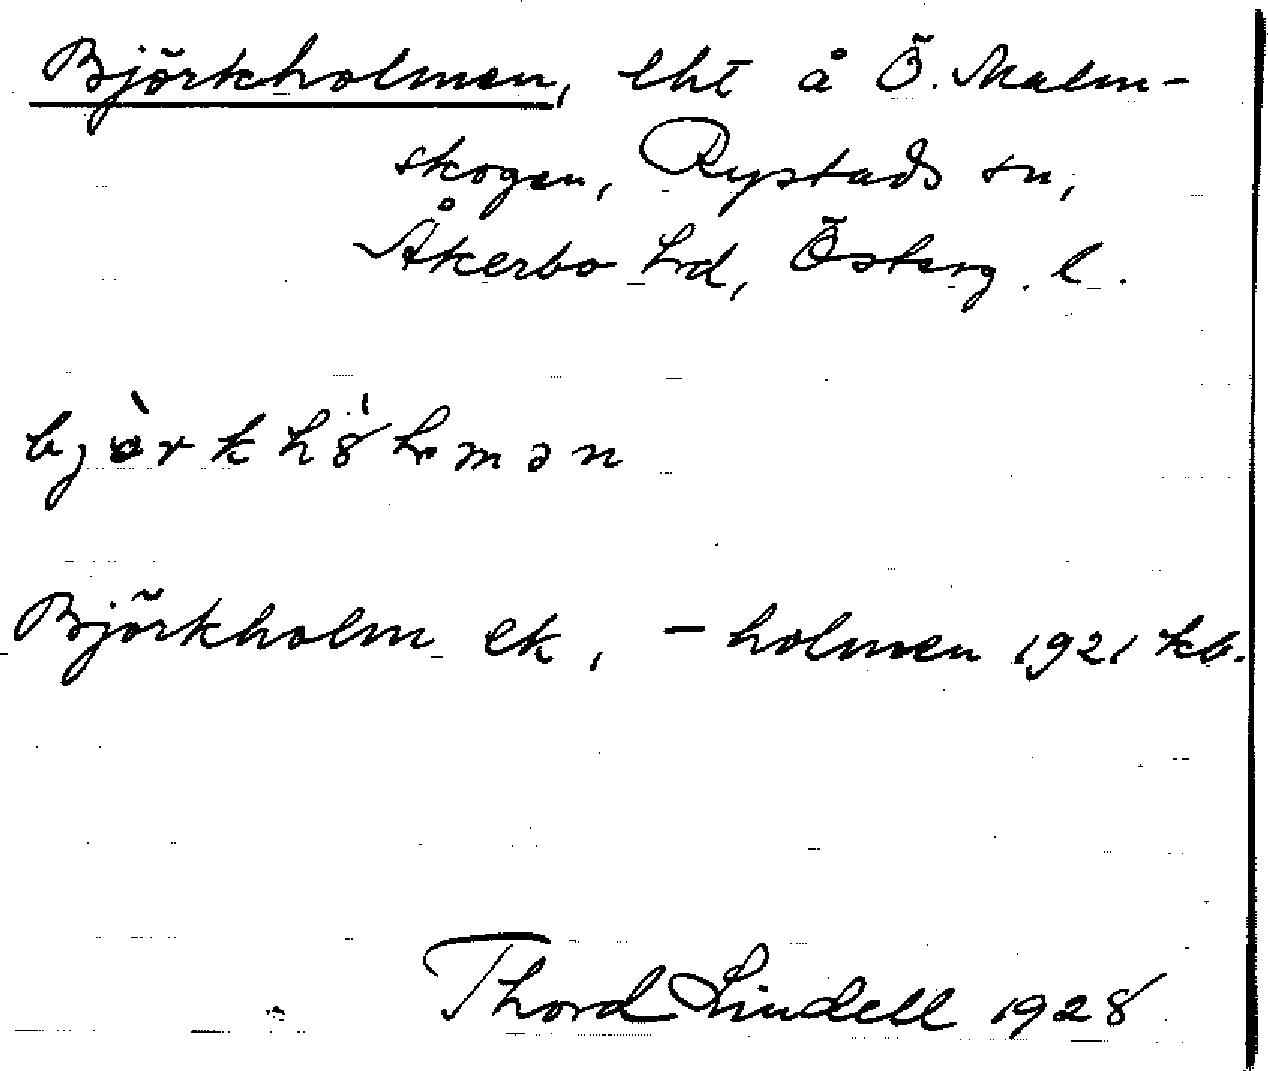 Björkholmen, lht å Ö. Malm-
skogen, Rystads sn,
Åkerbo hd, Österg. l.
Björkholm ek, -holmen 1921 kb.
Thord Lindell 1928